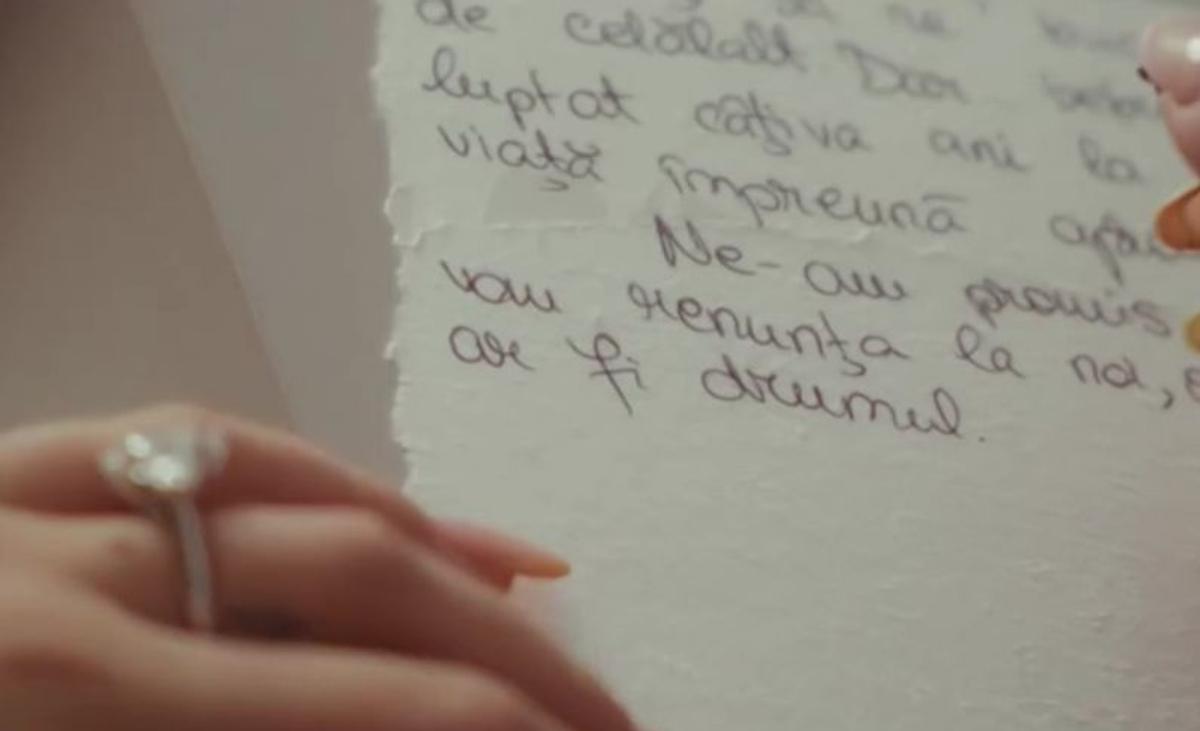 ne
de celălalt Doar
luptat câțiva ani la
viață împreună
Ne-am promis
vom renunța la noi,
ar fi drumul.